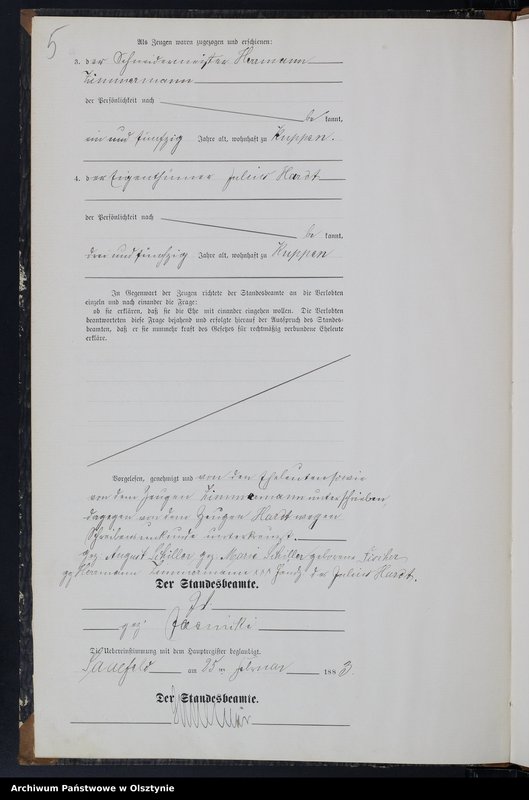 5
Als Zeugen waren zugezogen und erschienen:
3. der Schneidermeister Herrmann
Zimmermann
der Persönlichkeit nach
be kannt,
ein und fünfzig Jahre alt, wohnhaft zu Kuppen.
4. der Eigenthümer Julius Hardt
der Persönlichkeit nach
be kannt,
drei und fünfzig Jahre alt, wohnhaft zu Kuppen
In Gegenwart der Zeugen richtete der Standesbeamte an die Verlobten
einzeln und nach einander die Frage:
ob sie erklären, daß sie die Ehe mit einander eingehen wollen. Die Verlobten
beantworteten diese Frage bejahend und erfolgte hierauf der Ausspruch des Standes-
beamten, daß er sie nunmehr kraft des Gesetzes für rechtmäßig verbundene Eheleute
erkläre.
Vorgelesen, genehmigt und von den Eheleuten sowie
von dem Zeugen Zimmermann unterschrieben,
dagegen von dem Zeugen Hardt wegen
Schreibensunkunde unterkreuzt.
gez August Schiller gez Marie Schiller geborene Fischer
gez Herrmann Zimmermann xxx Handz des Julius Hardt.
Der Standesbeamte.
gez
Die Uebereinstimmung mit dem Hauptregister beglaubigt.
Saalfeld am 25 ten Februar 1883.
Der Standesbeamte.
Archiwum Państwowe w Olsztynie